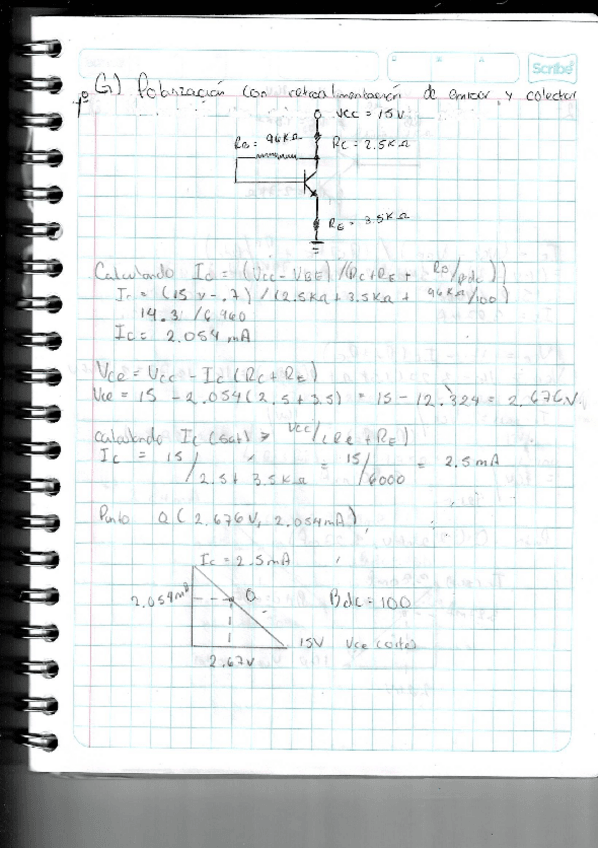 Scribe
1º G) Polarización con retroalimentación de emisor, y colector
VCC = 15V
RB = 96KΩ
RC = 2.5KΩ
RE = 3.5KΩ
Calculando Ic = (Vcc - VBE) / (Rc + RE + RB/βdc))
Ic = (15 v - .7) / (2.5KΩ + 3.5KΩ + 96KΩ/100)
14.3 / 6.960
Ic = 2.054 mA
Vce = Vcc - Ic (Rc + RE)
Vce = 15 - 2.054 (2.5 + 3.5) = 15 - 12.324 = 2.676V
Calculando Ic (sat) > Vcc/(Rc + RE)
Ic = 15 / 2.5 + 3.5KΩ = 15/6000 = 2.5 mA
Punto Q ( 2.676V, 2.054mA)
Ic = 2.5mA
2.054mA
Q
Bdc = 100
15V VCE (corte)
2.67V